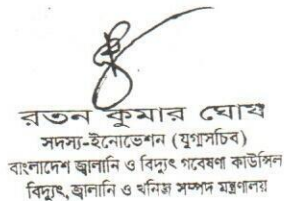 রতন কুমার ঘোষ
সদস্য-ইনোভেশন (যুগ্মসচিব)
বাংলাদেশ জ্বালানি ও বিদ্যুৎ গবেষণা কাউন্সিল
বিদ্যুৎ, জ্বালানি ও খনিজ সম্পদ মন্ত্রণালয়